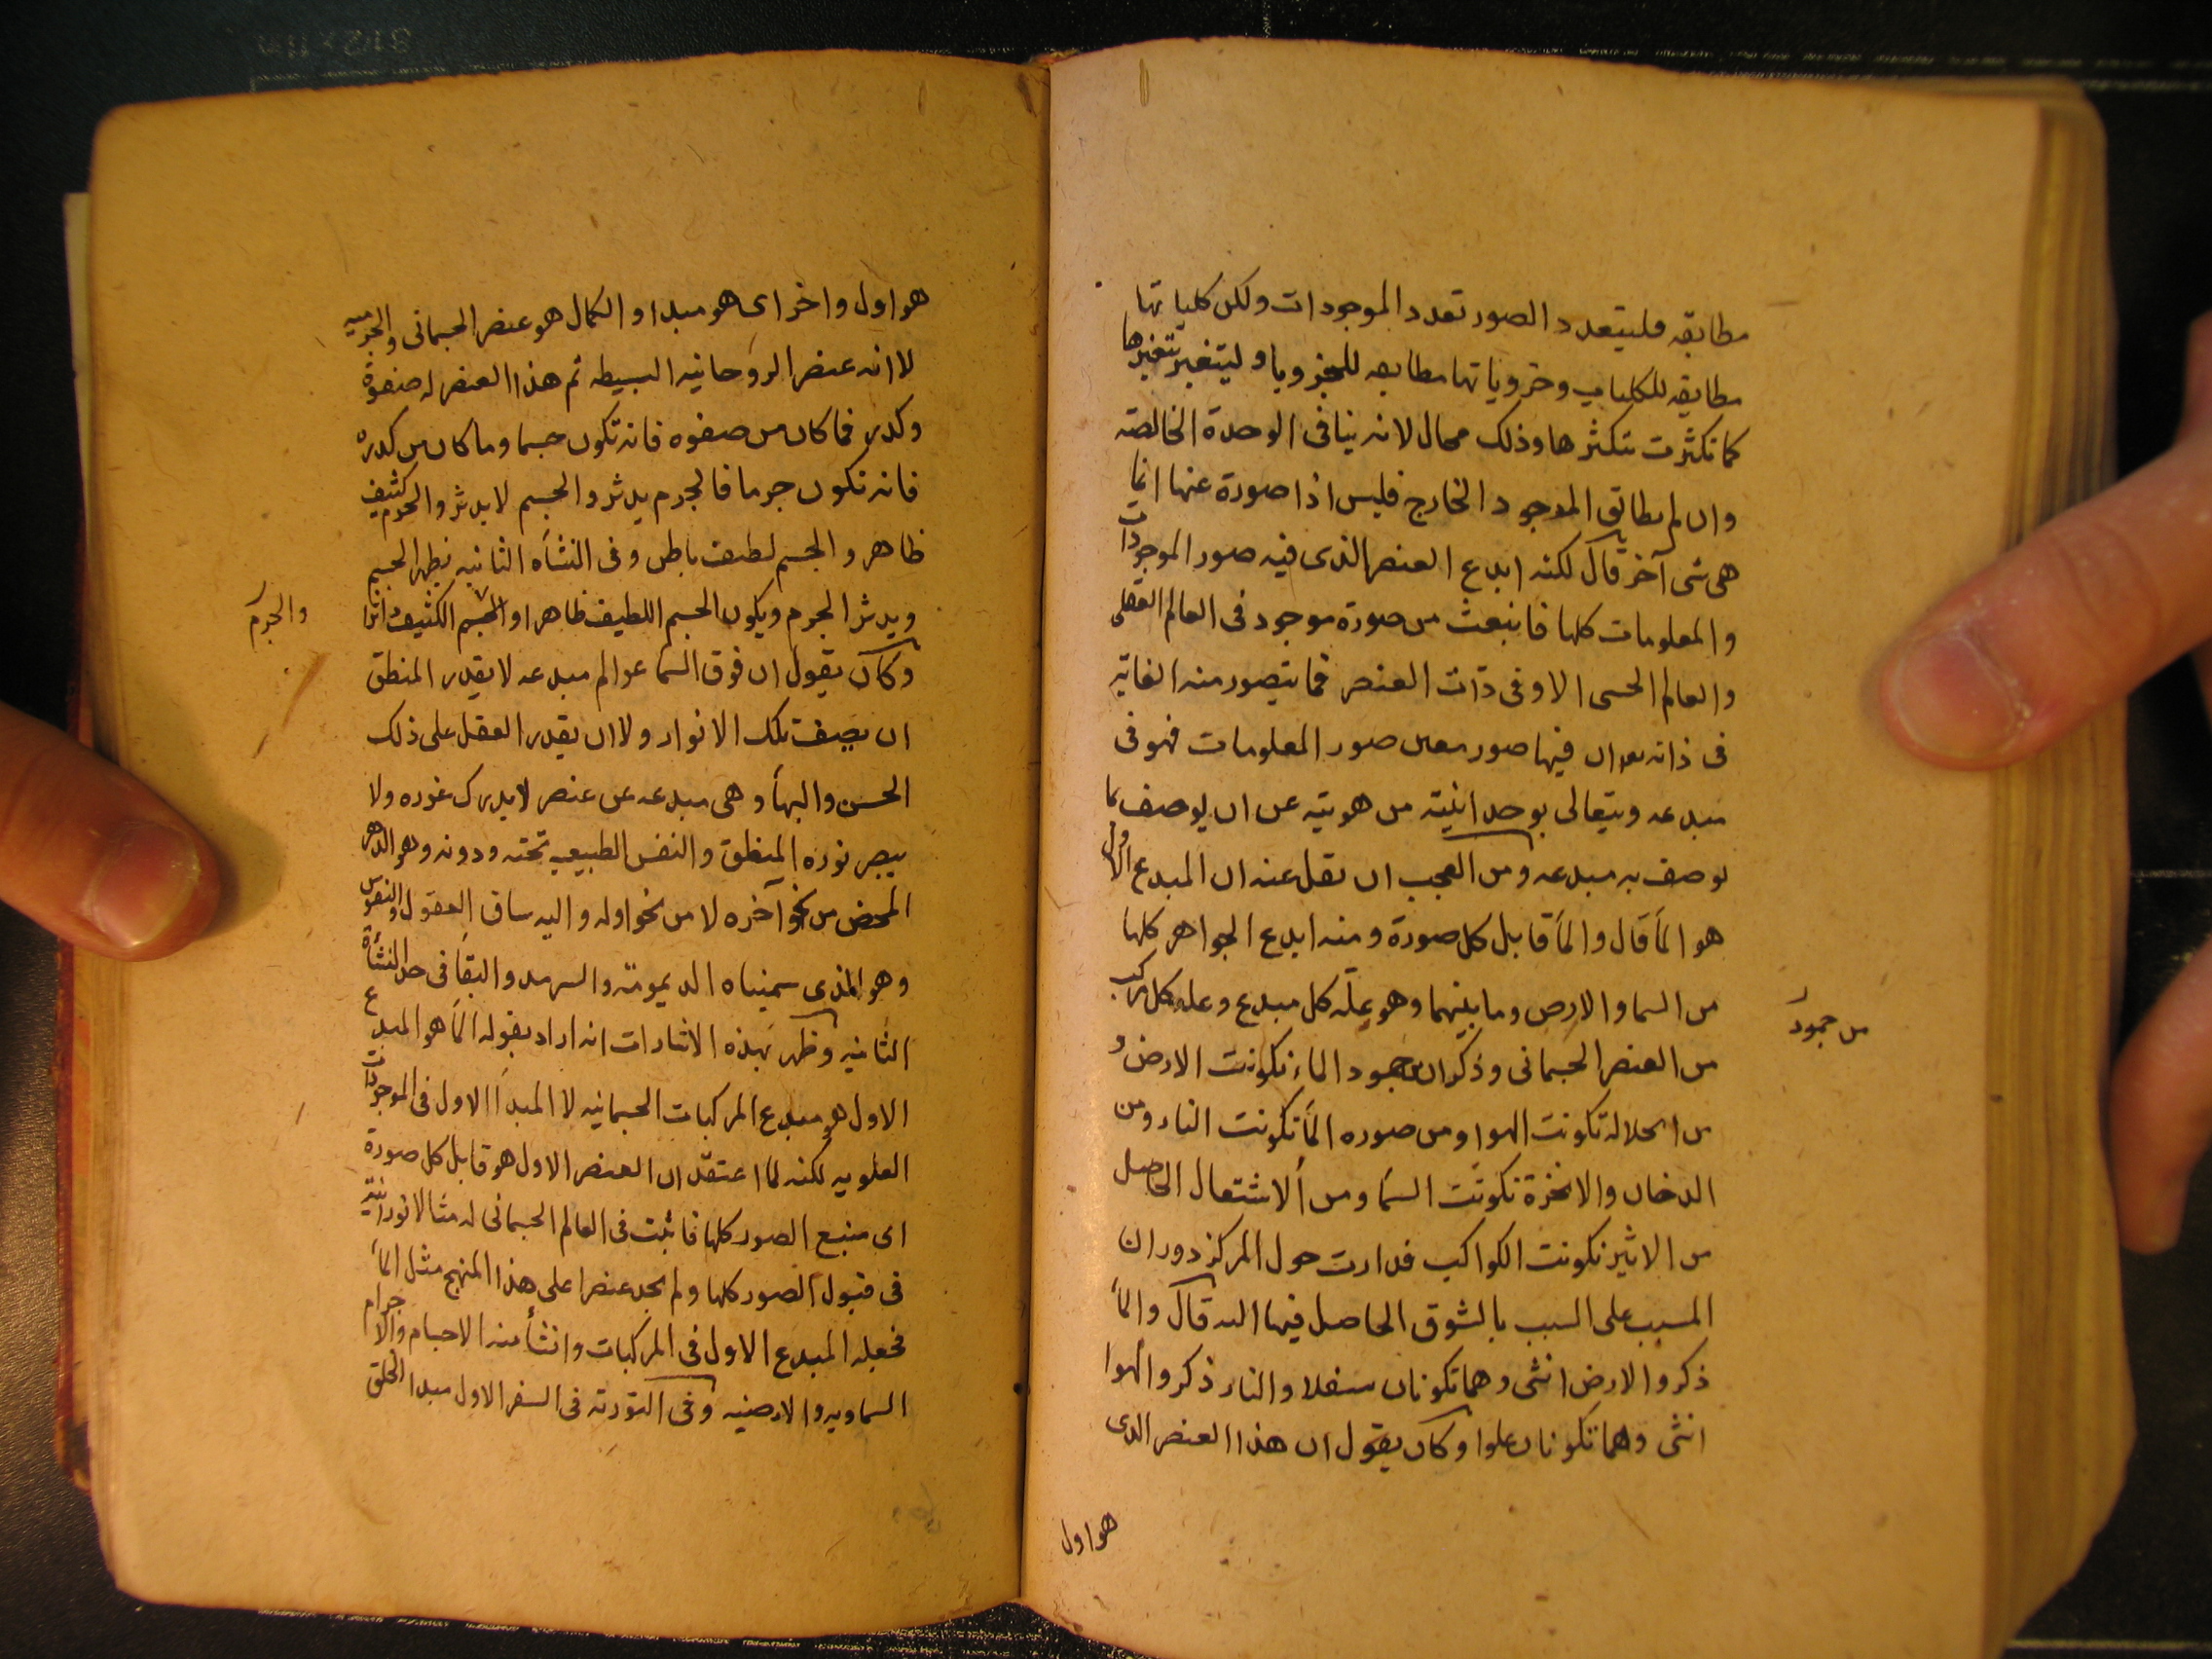 مطابقه فليتعدد الصور تعدد الموجودات ولكن كلياتها
مطابقه للكليات وجزوياتها مطابقه للجزويا وليتغير بتغيرها
كما تكثرت بتكثرها وذلك محال لانه ينافى الوحدة الخالصة
وان لم يطابق الموجود الخارج فليس اذا صورة عنها انما
هى شى آخر قال لكنه ابدع العنصر الذى فيه صور الموجودات
والمعلومات كلها فانبعث من صورة موجود فى العالم العقلى
والعالم الحسى الا وفى ذات العنصر فما يتصور منه الغاية
فى ذاته ان فيها صور صور المعلومات فهو فى
مبدعه ويتعالى بوحدانيته من هويته عن ان يوصف بما
يوصف به مبدعه ومن العجب ان نقل عنه ان المبدع الاول
هو الماَ قال والماَ قابل كل صورة ومنه ابدع الجواهر كلها
من السما والارض وما بينهما وهو علة كل مبدع وعلة كل مركب
من العنصر الجسمانى وذكر ان من جمود الماء تكونت الارض و
من انحلاله تكونت الهوا ومن صوره الماَ تكونت النار ومن
الدخان والابخرة تكونت السما ومن الاشتعال الحاصل
من الاثير تكونت الكواكب فدارت حول المركز دوران
المسبب على السبب بالشوق الحاصل فيها اليه قال والماَ
ذكر والارض انثى وهما تكونان سفلا والنار ذكر والهوا
انثى وهما تكونان علوا وكان يقول ان هذا العنصر الذى
من جمود
هو اول
هو اول واخر اى هو مبدا والكمال هو عنصر الجسمانى والجرميه
لا انه عنصر الروحانيه البسيطه ثم هذا العنصر له صفوة
وكدر فما كان من صفوه فانه تكون جسما وما كان من كدره
فانه تكون جرما فالجرم يدثر والجسم لا يدثر والجرم كثيف
ظاهر والجسم لطيف باطن وفى النشاَه الثانيه يظهر الجسم
ويدثر الجرم ويكون الجسم اللطيف ظاهرا والجسم الكثيف داثرا
والجرم
وكان يقول ان فوق السما عوالم مبدعه لا يقدر المنطق
ان يصف تلك الانوار ولا ان يقدر العقل على ذلك
الحسن والبهاَ وهى مبدعه عن عنصر لا يدرك غوره ولا
يبصر نوره المنطق والنفس الطبيعيه تحته ودونه وهو الدهر
المحض من نحو آخره لا من نحو اوله واليه ساق العقول والنفوس
وهو الذى سميناه الديمومة والسرمد والبقاَ فى حد النشأة
الثانيه وظهر بهذه الاشارات انه اراد بقوله الماَ هو المبدع
الاول هو مبدع المركبات الجسمانيه لا المبدأ الاول فى الموجودات
العلويه لكنه لما اعتقد ان العنصر الاول هو قابل كل صورة
اى منبع الصور كلها فاثبت فى العالم الجسمانى له مثالا نورانية
فى قبول الصور كلها ولم يجد عنصرا على هذا المنهج مثل الماَ
فجعله المبدع الاول فى المركبات وانشأ منه الاجسام والاجرام
السماويه والارضيه وفى التورته فى السفر الاول مبدا الخلق